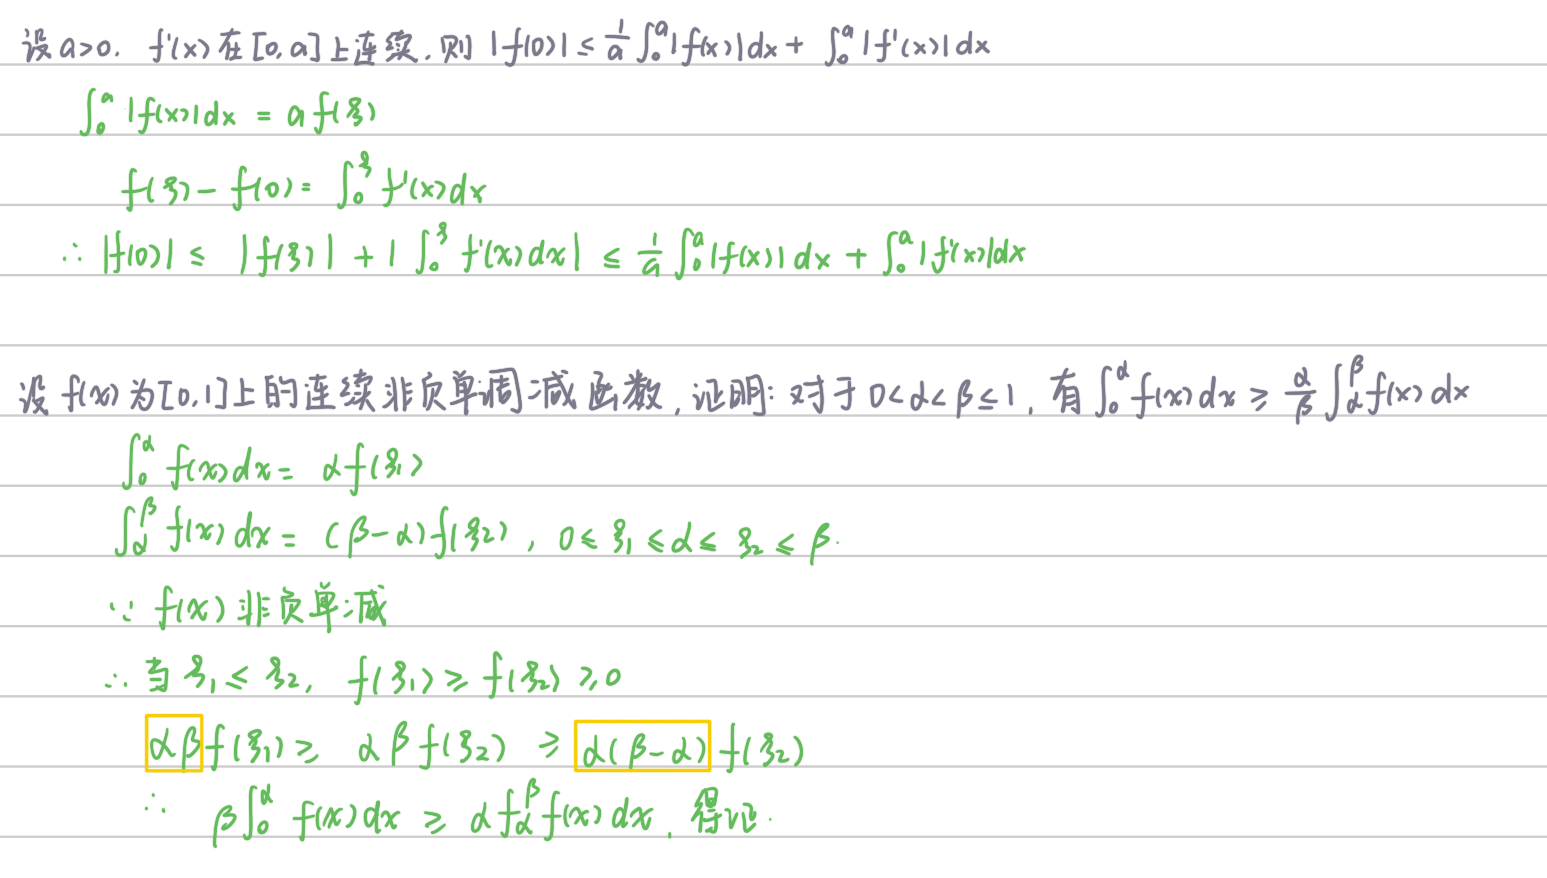 设 a>0. f'(x) 在 [0,a] 上连续. 则 |f(0)| ≤ 1/a ∫₀ᵃ|f(x)|dx + ∫₀ᵃ|f'(x)|dx
∫₀ᵃ|f(x)|dx = a f(ξ)
f(ξ) - f(0) = ∫₀^ξ f'(x)dx
∴ |f(0)| ≤ |f(ξ)| + |∫₀^ξ f'(x)dx| ≤ 1/a ∫₀ᵃ|f(x)|dx + ∫₀ᵃ|f'(x)|dx
设 f(x) 为[0,1]上的连续非负单调减函数, 证明: 对于 0<α<β≤1, 有 ∫₀^α f(x)dx ≥ α/β ∫_α^β f(x)dx
∫₀^α f(x)dx = αf(ξ₁)
∫_α^β f(x)dx = (β-α)f(ξ₂), 0≤ξ₁≤α≤ξ₂≤β.
∵ f(x)非负单减
∴ 当 ξ₁≤ξ₂, f(ξ₁) ≥ f(ξ₂) ≥ 0
αβf(ξ₁) ≥ αβf(ξ₂) ≥ α(β-α)f(ξ₂)
∴ β∫₀^α f(x)dx ≥ α∫_α^β f(x)dx, 得证.